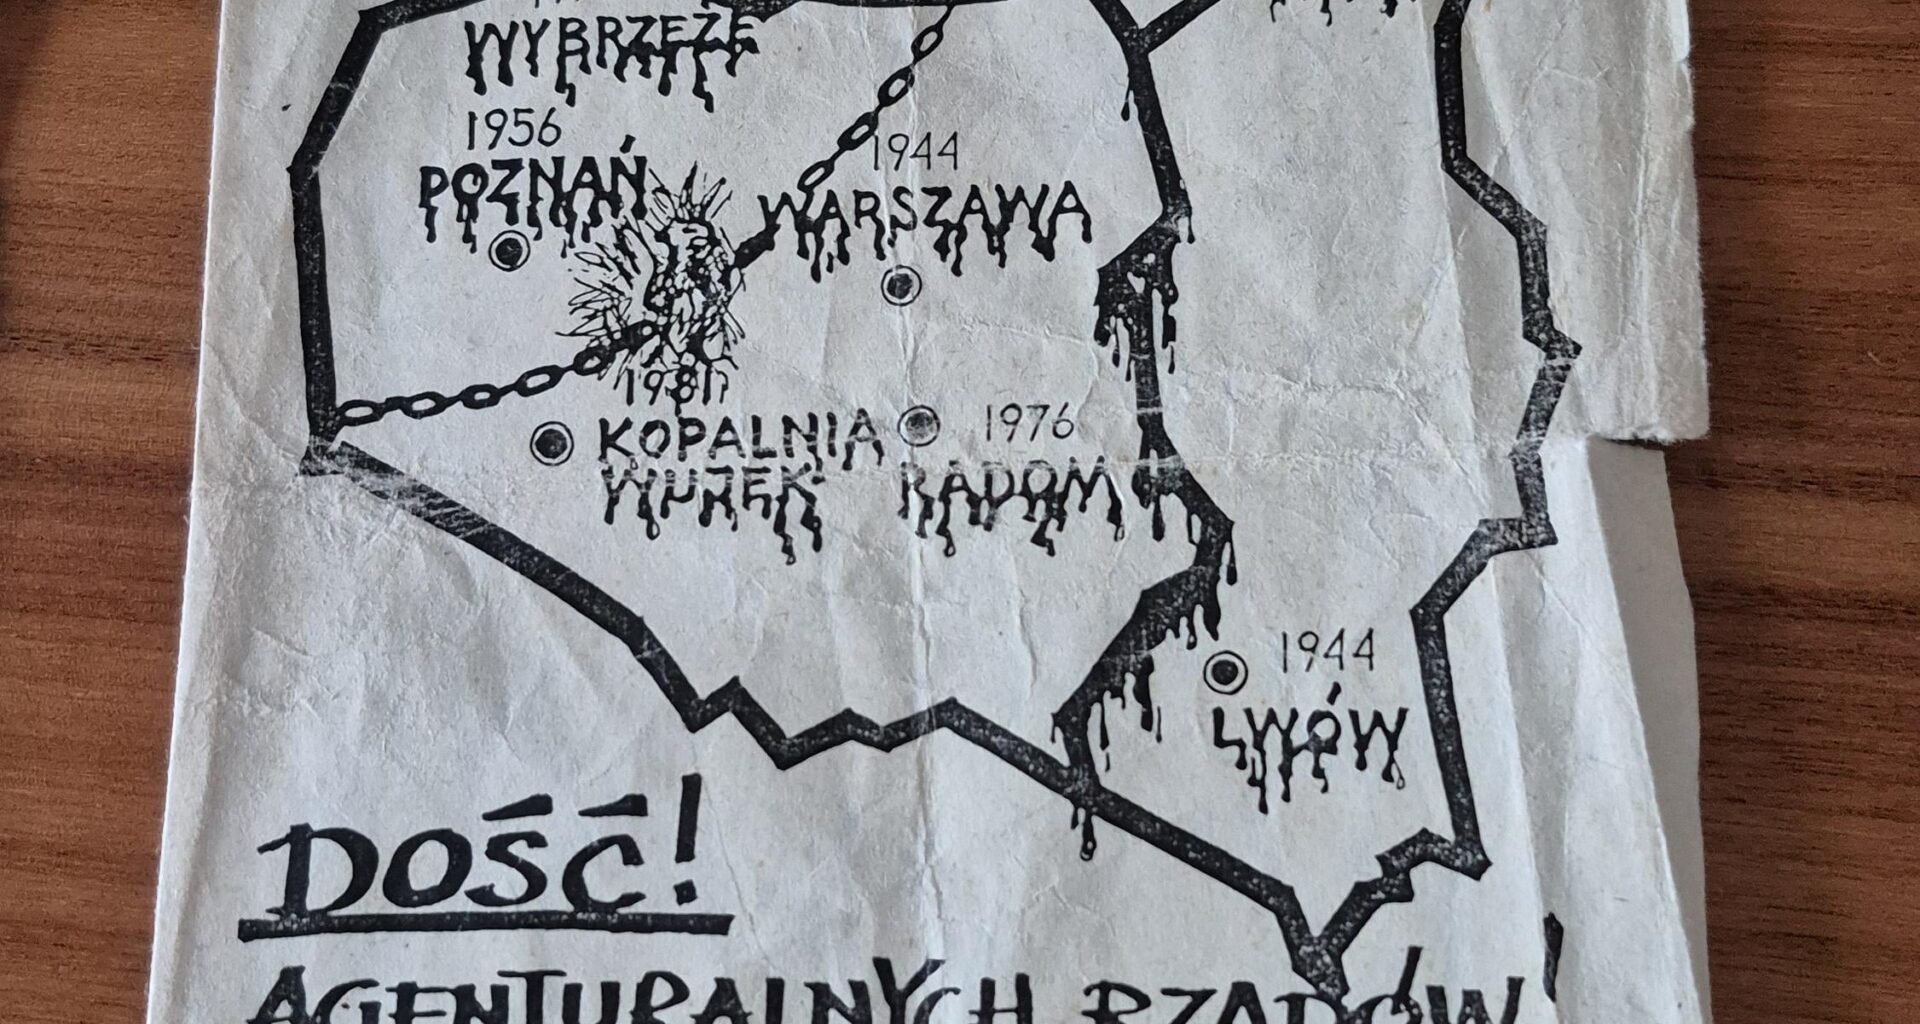 WYBRZEŻE
1956
POZNAŃ
1944
WARSZAWA
1981
KOPALNIA
WUJEK
1976
RADOM
1944
LWÓW
DOŚĆ!
AGENTURALNYCH RZĄDÓW!